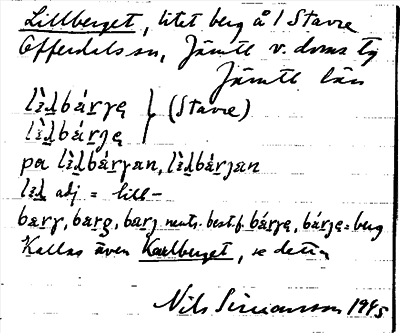 Lillberget, litet berg å / Stavre
Offerdals sn, Jämtl v. doms tg
Jämtl län
lìḷbárγę } (Stavre)
lìḷbárję
pa lìḷbárγan, lìḷbárjan
liḷ adj = lill-
bærγ, bærg, bærj neutr. best.f. bárγę, bárję = berg
Kallas även Karlberget, se detta
Nils Simonsson 1945